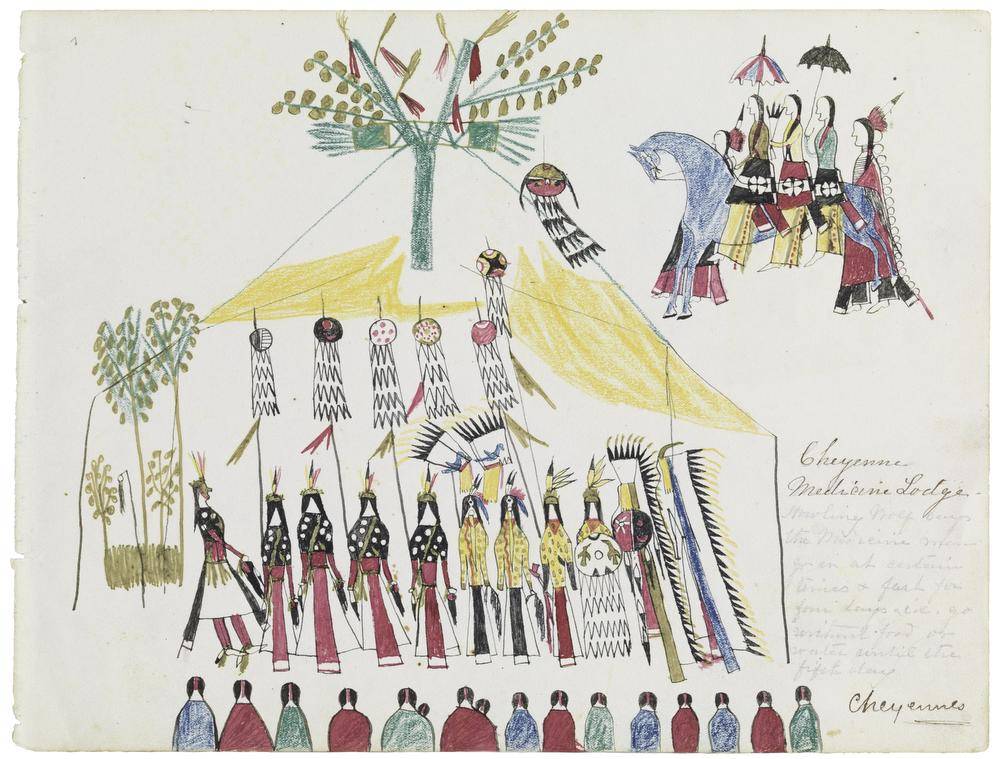 Cheyenne
Medicine Lodge.
Howling Wolf says
the Medicine men
go in at certain
times & fast for
four days and go
without food or
water until the
fifth day
Cheyennes